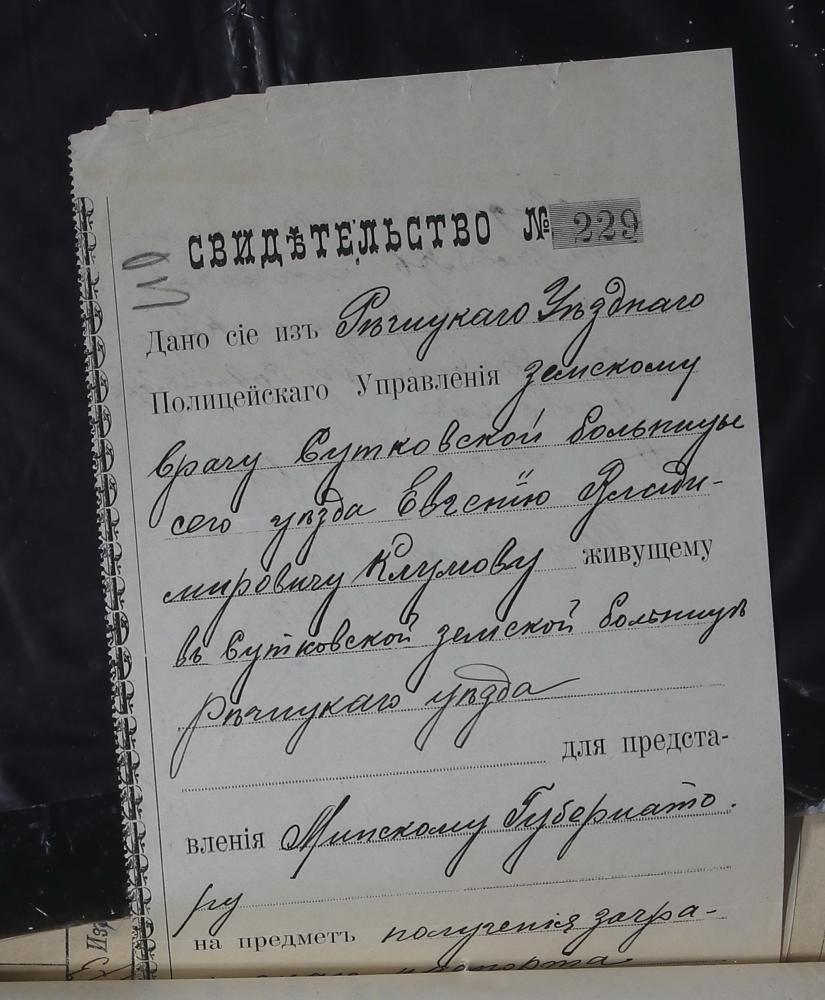 СВИДѢТЕЛЬСТВО № 229
Дано сіе изъ Рѣчицкаго Уѣзднаго
Полицейскаго Управленія земскому
врачу Сутковской больницы
сего уѣзда Евгенію Влади-
мировичу Клумову живущему
въ Сутковской земской больницѣ
Рѣчицкаго уѣзда
для предста-
вленія Минскому Губернато.
ру
на предметъ полученія загра-
паспорта